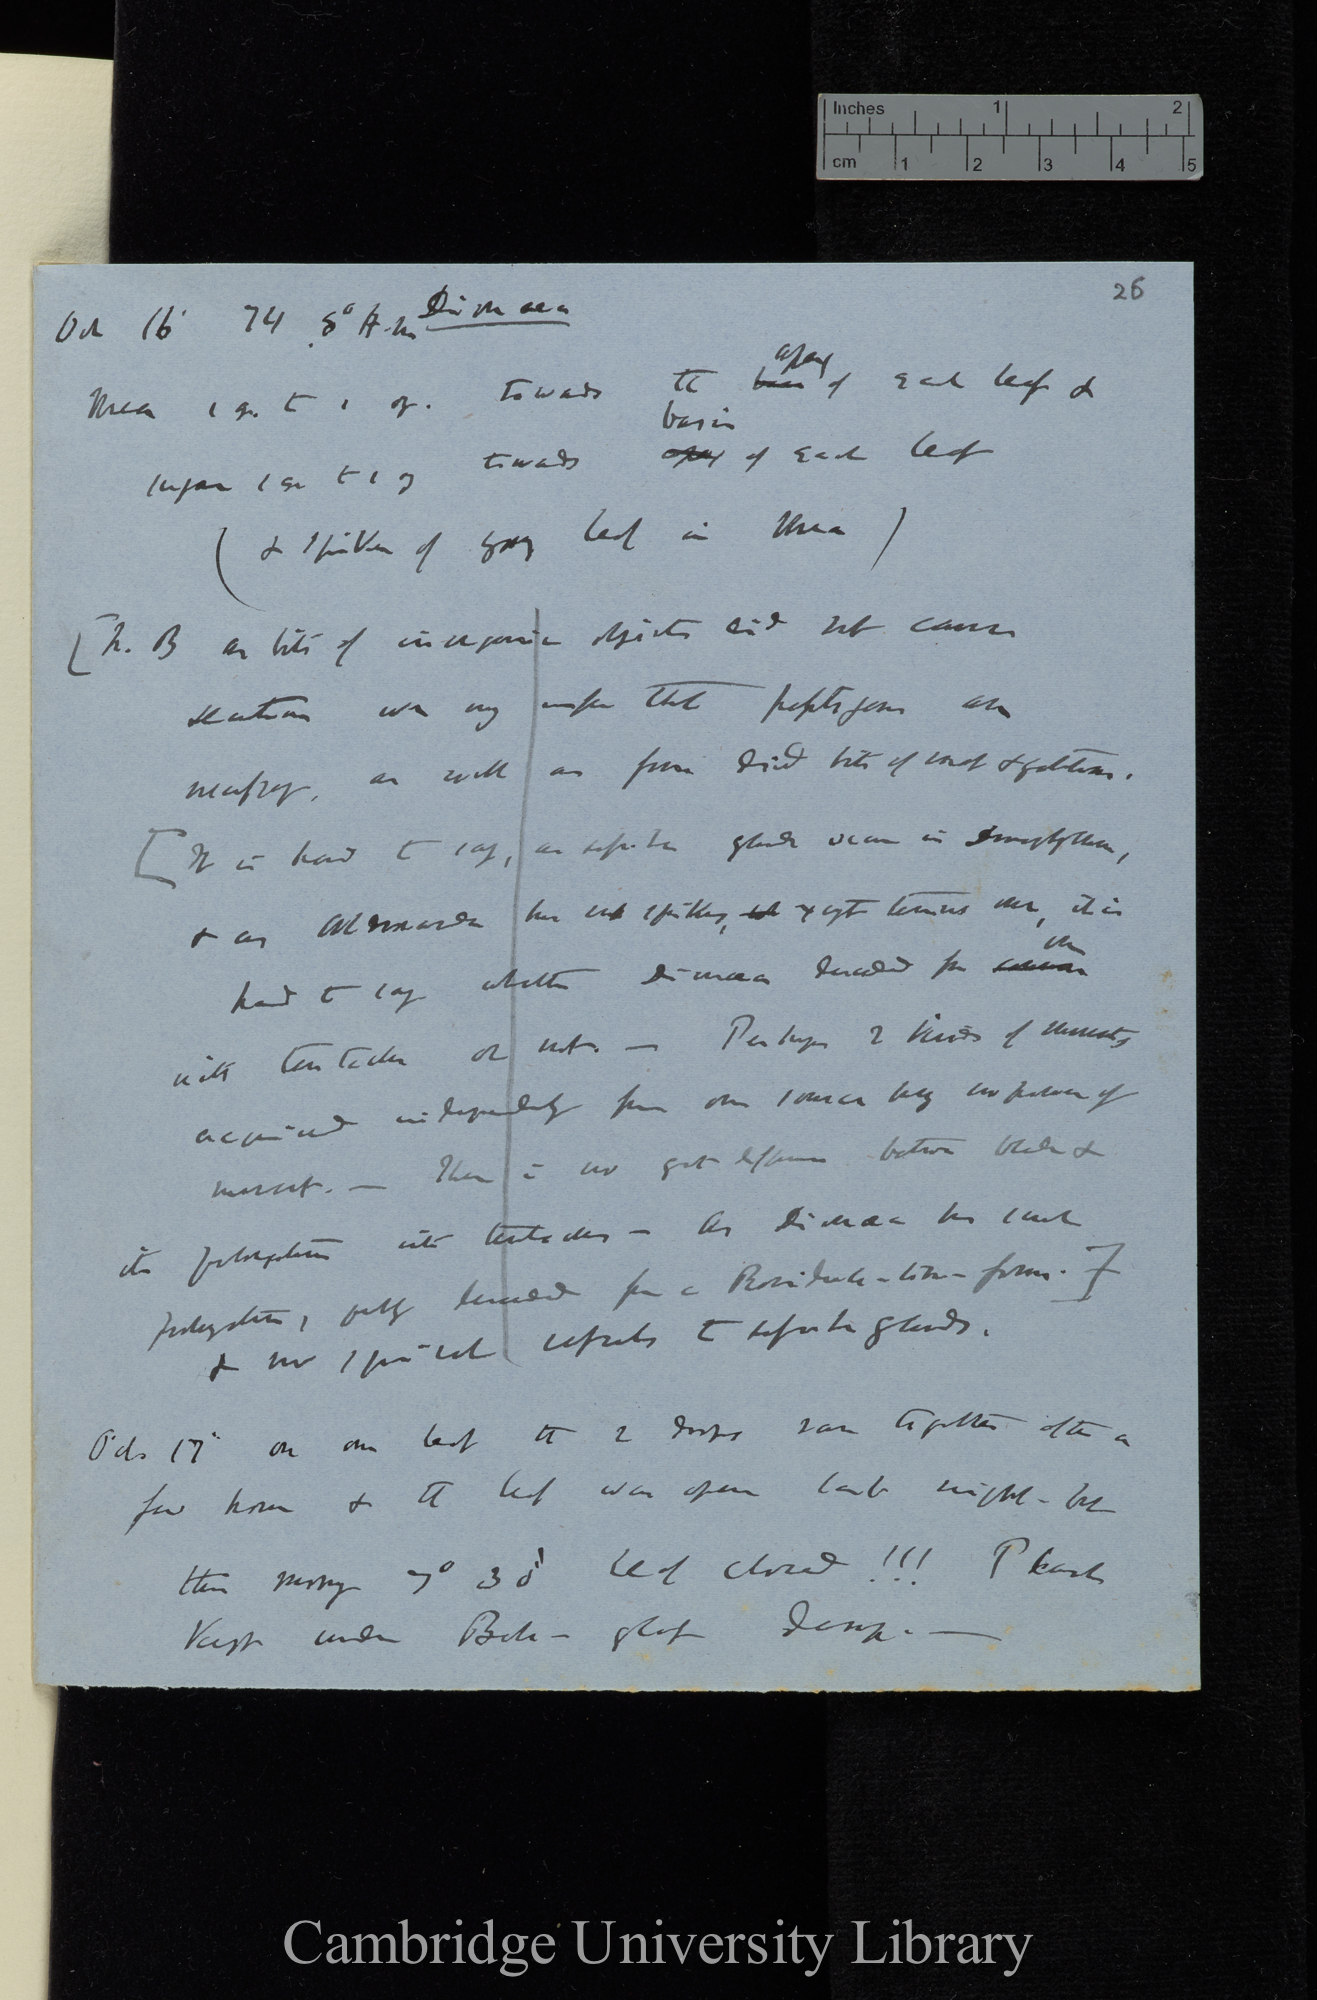 Inches 1 2
cm 1 2 3 4 5
26
Oct 16' 74 8° A.m Dionaea
Urea 1 gr. to 1 oz. towards the apex of each leaf &
basis
sugar 1 gr to 1 oz towards apex of each leaf
(& spikes of young leaf in Urea)
[N. B as bits of inorganic objects did not cause
secretion we may infer that peptogens are
necessary, as well as from dried bits of meat & gelatine.
[It is hard to say, as sessile glands occur in Drosophyllum,
& as Aldrovanda has not spikes, it is
on
hard to say whether Dionaea descended from
with tentacles or not. — Perhaps 2 kinds of movements
acquired independently from one source having no power of
movement. — There is no great difference between blade &
its prolongations into tentacles — As Dionaea has such
prolongations, descended from a Roridula-like-form.]
& no spiral vessels to sessile glands.
Oct. 17' on one leaf the 2 drops ran together after a
few hours & the leaf was open last night — but
this morning 7° 30' leaf closed!!! Plants
Kept under Bell-glass damp. —
Cambridge University Library